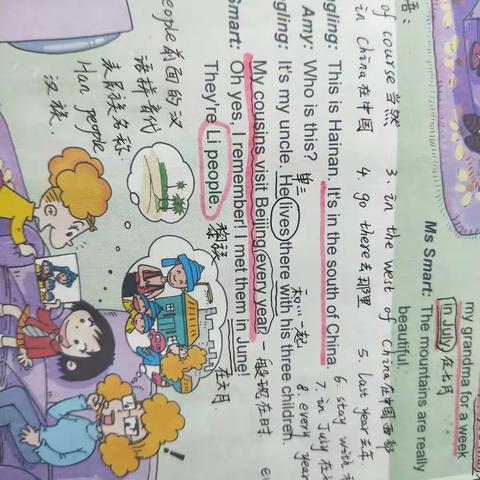 语:
of course 当然
in China 在中国
3. in the west of China 在中国西部
4. go there 去那里
5. last year 去年
6. stay with
7. in July 在七
8. every year
my grandma for a week
in July) 在七月
Ms Smart: The mountains are really
beautiful.
gling: This is Hainan. It's in the south of China.
Amy: Who is this?
单三
gling: It's my uncle. He lives there with his three children.
和…一起
My cousins visit Beijing every year.
一般现在时
Smart: Oh yes, I remember! I met them in June!
在六月
They're Li people.
黎族
people前面的汉
语拼音代
表民族名称.
Han people
汉族.